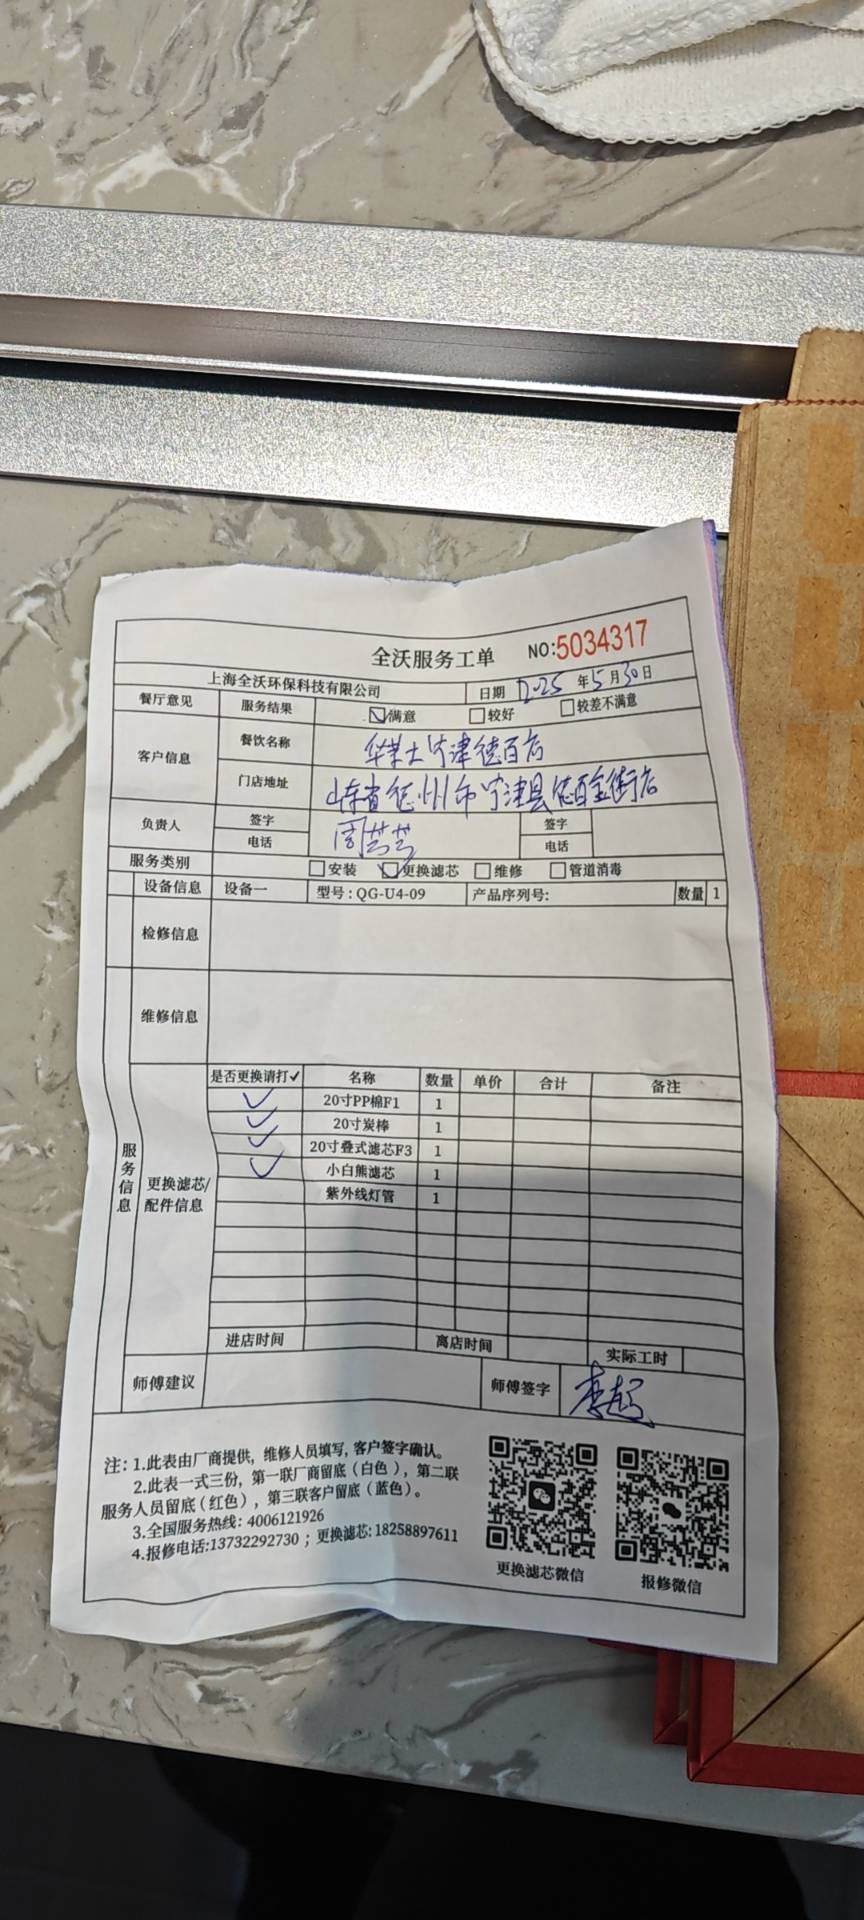 全沃服务工单 NO:5034317
上海全沃环保科技有限公司 日期 2025年5月30日
餐厅意见 服务结果 满意 较好 较差不满意
客户信息 餐饮名称 华莱士宁津德百店
门店地址 山东省德州市宁津县德百金街店
负责人 签字 周芸芸 签字
电话 电话
服务类别 安装 更换滤芯 维修 管道消毒
设备信息 设备一 型号:QG-U4-09 产品序列号: 数量 1
检修信息
维修信息
服务信息
更换滤芯/配件信息
是否更换请打✓ 名称 数量 单价 合计 备注
✓ 20寸PP棉F1 1
✓ 20寸炭棒 1
✓ 20寸叠式滤芯F3 1
✓ 小白熊滤芯 1
紫外线灯管 1
进店时间 离店时间 实际工时
师傅建议 师傅签字
注:1.此表由厂商提供,维修人员填写,客户签字确认。
2.此表一式三份,第一联厂商留底(白色),第二联
服务人员留底(红色),第三联客户留底(蓝色)。
3.全国服务热线:4006121926
4.报修电话:13732292730;更换滤芯:18258897611
更换滤芯微信 报修微信